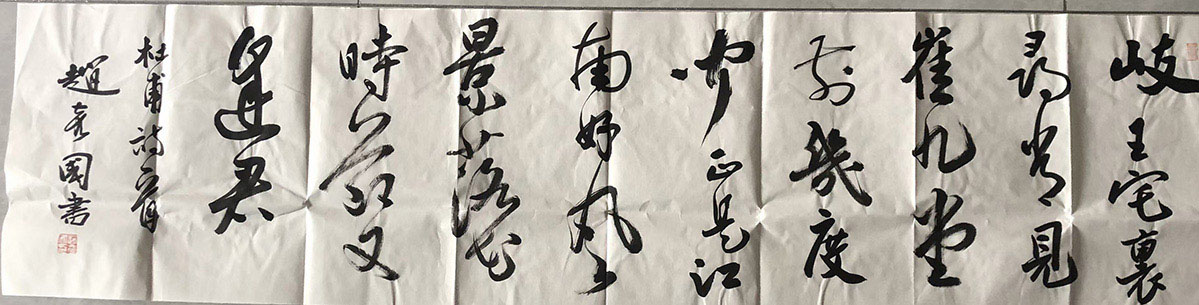 岐王宅裏
尋常見
崔九堂
前幾度
聞正是江
南好風
景落花
時節又
逢君
杜甫詩一首
趙國書